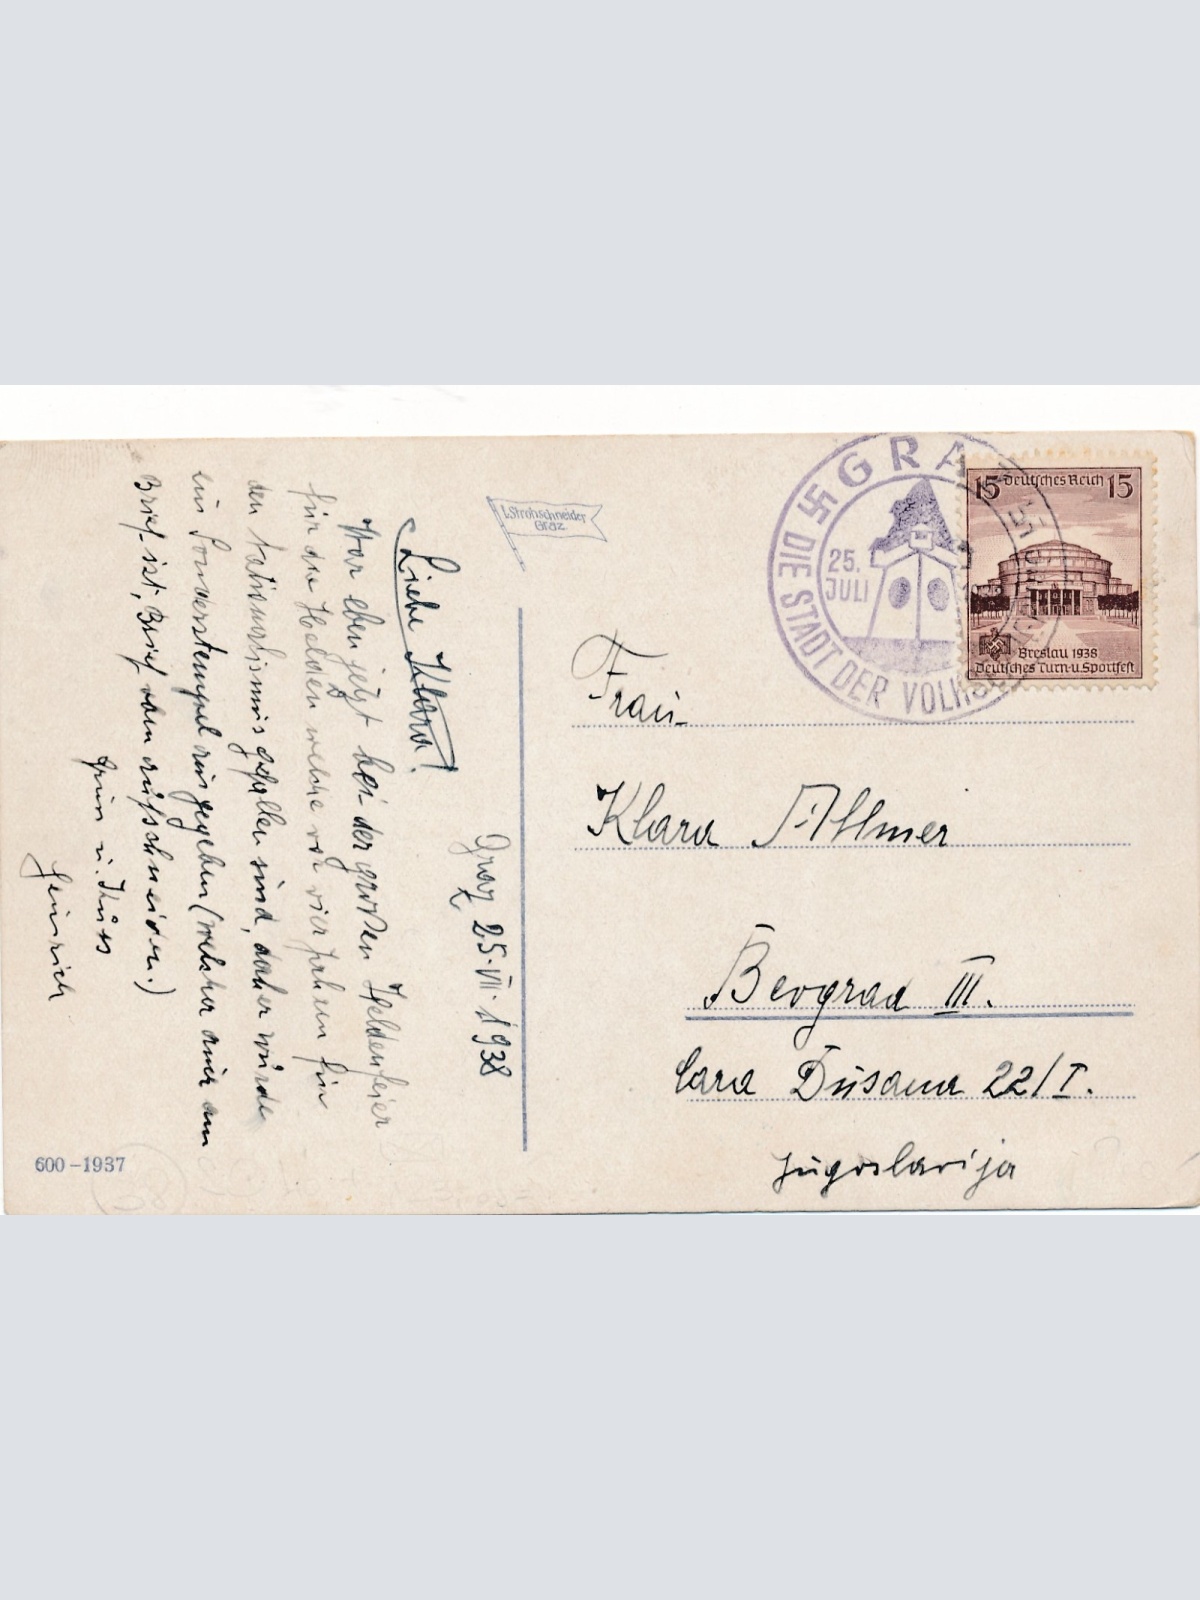 Graz 25.VII.1938
Liebe Klara!
War eben jetzt bei der großen Heldenfeier
für die Helden welche vor vier Jahren für
den Nationalismus gefallen sind, daher wurde
ein Sonderstempel ausgegeben (welcher auch am
Brief ist, Brief dann aufschneiden.)
Gruss u. Kuss
Heinrich
600-1937
I. Strohschneider
Graz.
GRAZ
25.
JULI
DIE STADT DER VOLKS
15 Deutsches Reich 15
Breslau 1938
Deutsches Turn-u. Sportfest
Frau
Klara Allmer
Beograd III.
Cara Dušana 22/I.
Jugoslavija